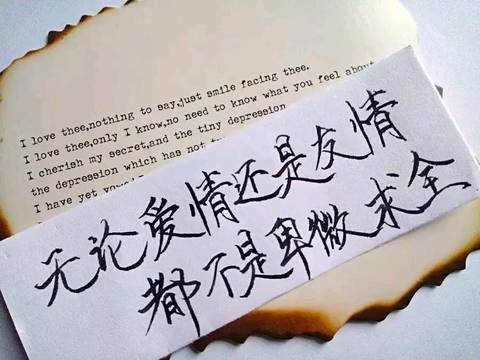 I love thee,nothing to say,just smile facing thee.
I love thee,only I know,no need to know what you feel about
I cherish my secret,and the tiny depression
the depression which has not
I have yet
无论爱情还是友情
都不是卑微求全